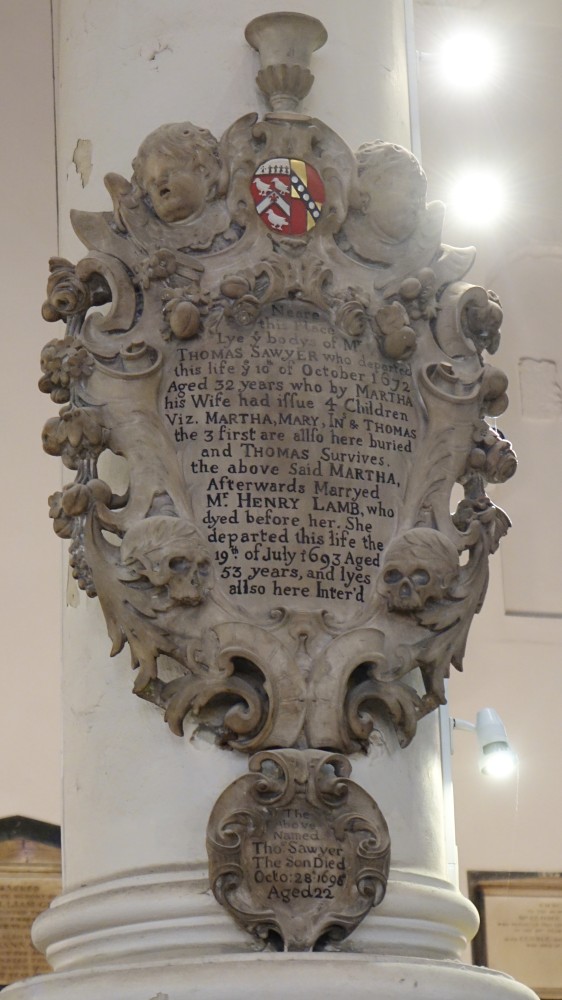 Neare
this Place
Lye ẙ bodys of Mr
THOMAS SAWYER who departed
this life ẙ 10th of October 1672
Aged 32 years who by MARTHA
his Wife had issue 4 Children
Viz. MARTHA, MARY, INo & THOMAS
the 3 first are allso here buried
and THOMAS Survives.
the above Said MARTHA,
Afterwards Marryed
Mr. HENRY LAMB, who
dyed before her. She
departed this life the
19th of July 1693 Aged
53 years, and lyes
allso here Inter'd
The
above
Named
Tho: Sawyer
The Son Died
Octo: 28th 1696
Aged 22